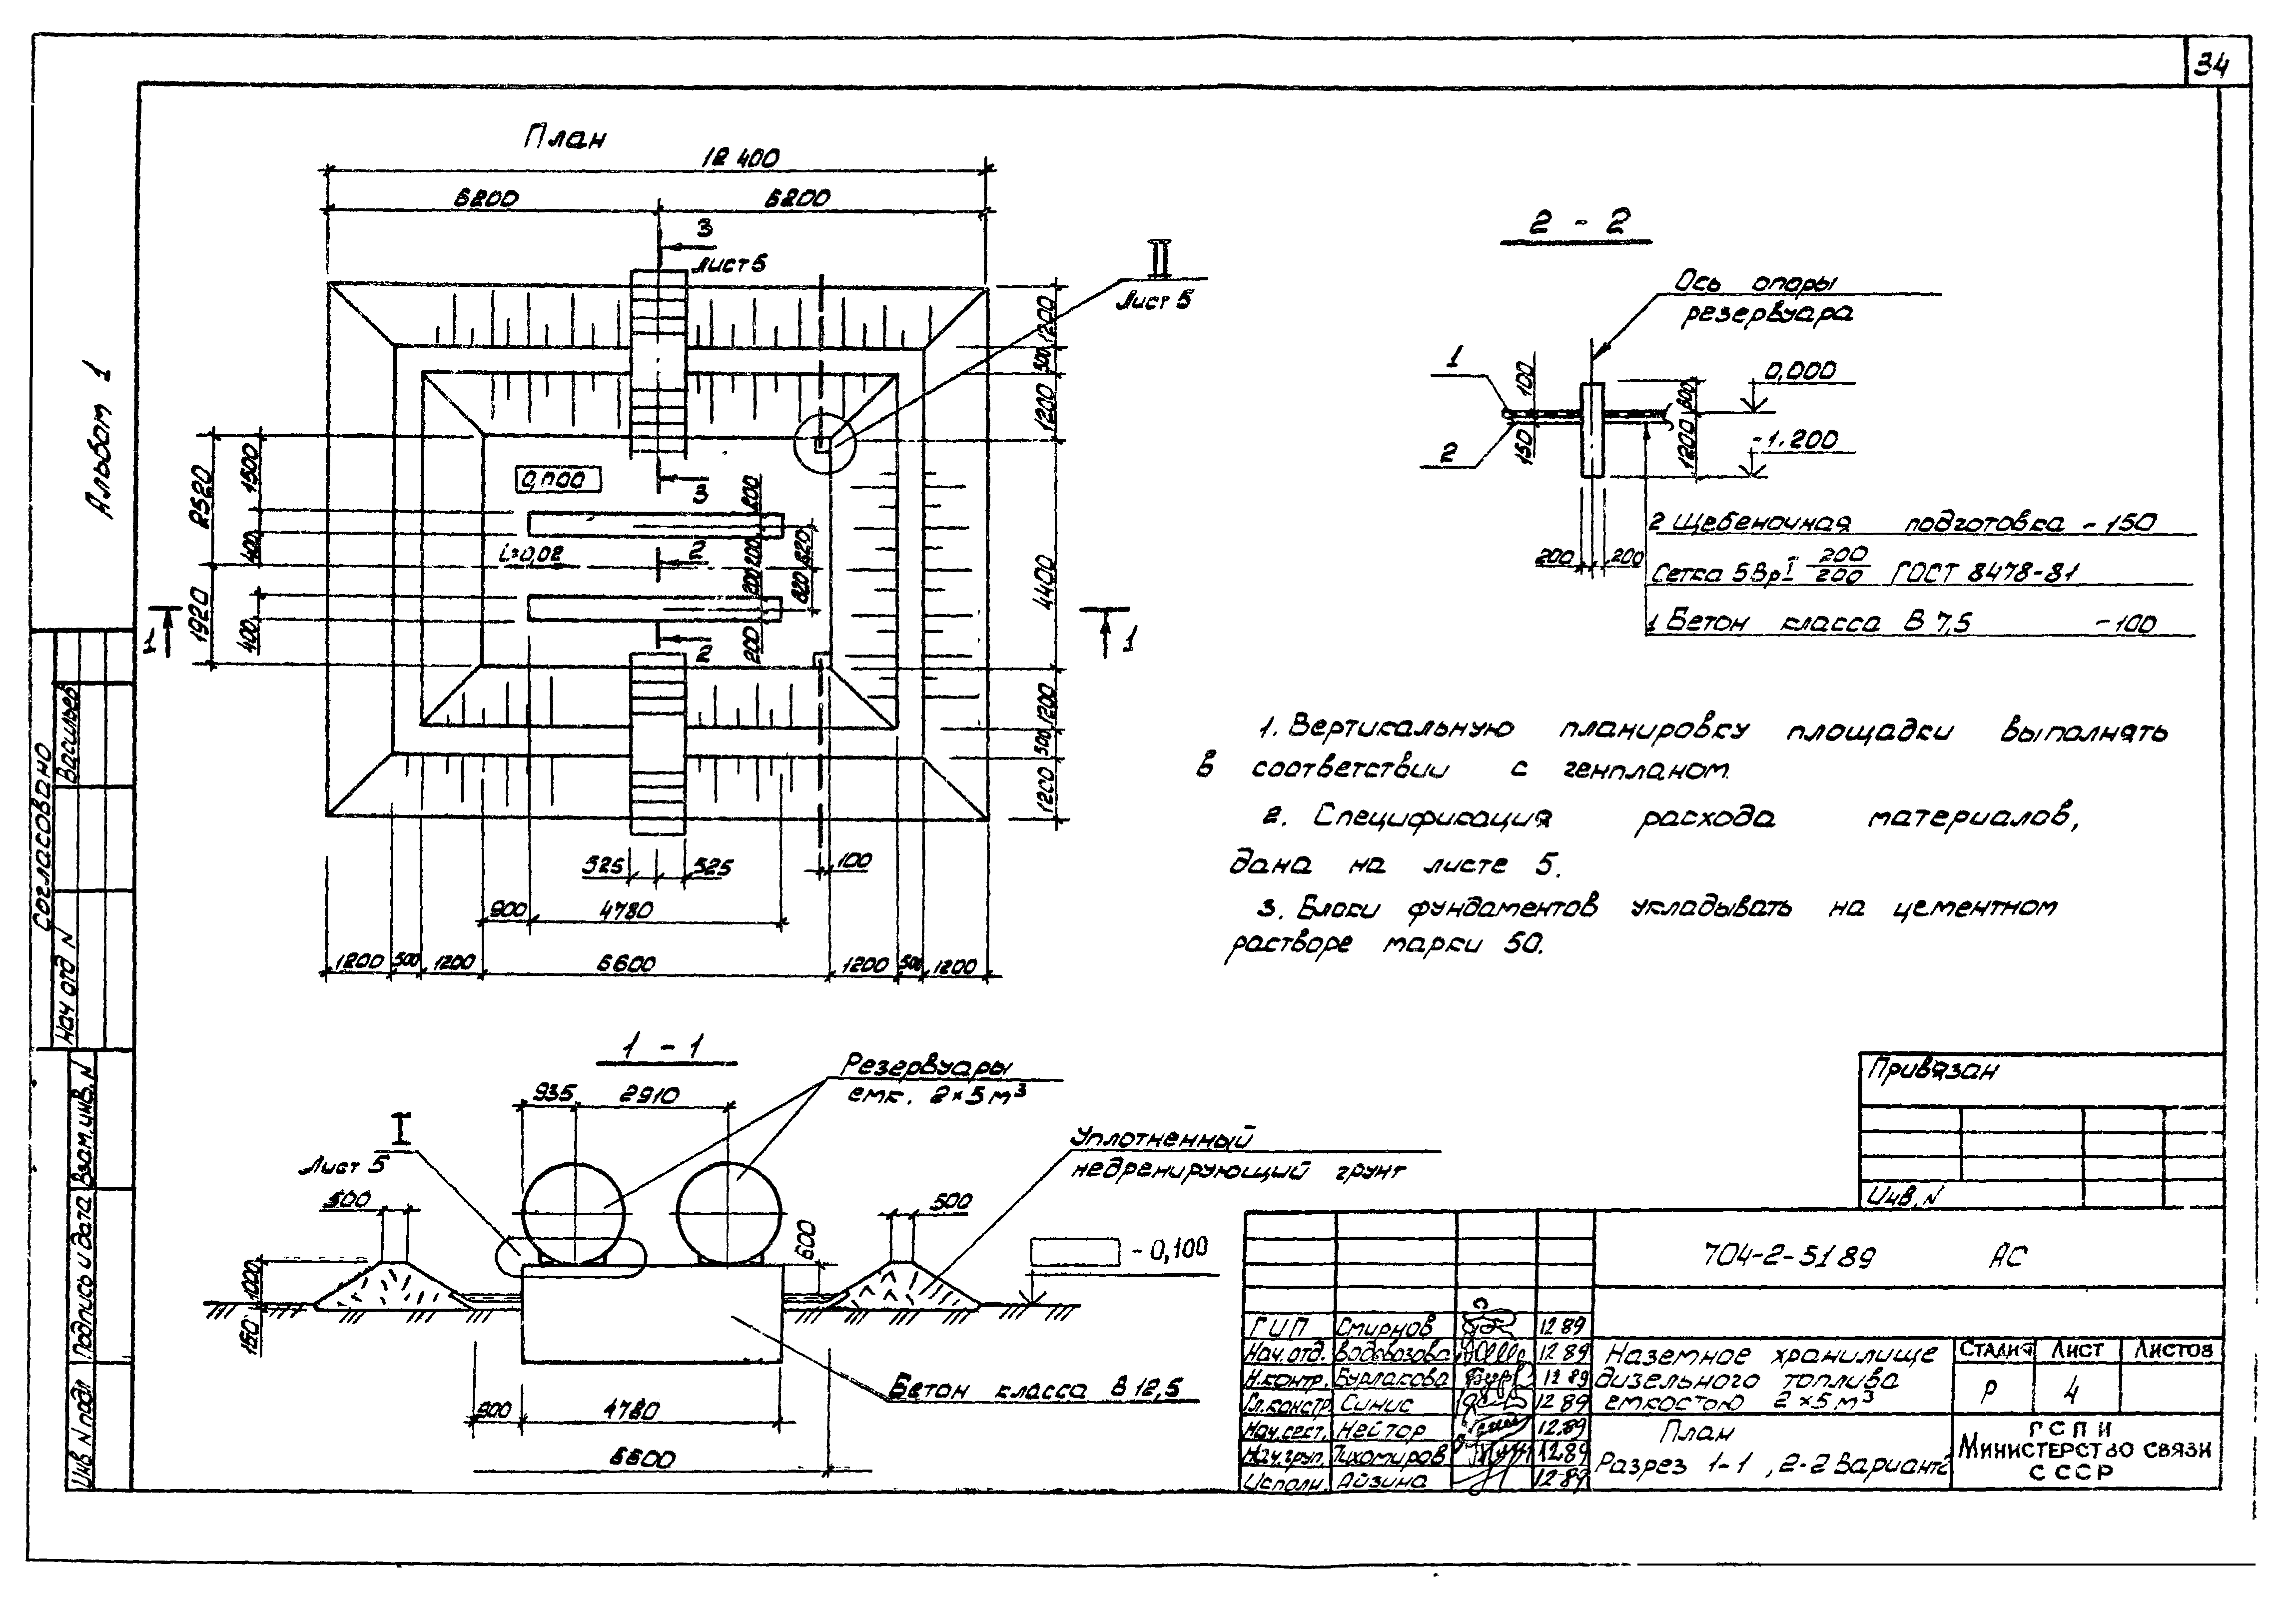 34
Альбом 1
План
12 400
6200 6200
3
Лист 5
II
Лист 5
1200
500
1200
4400
1200
500
1200
2520
1500
400
1920
400
0,000
3
i=0,02
2
200
200
200
200
620
820
2
1
1
525 525
100
900 4780
1200 500 1200 6600 1200 500 1200
2 - 2
Ось опоры
резервуара
1
2
100
150
600
1200
0,000
-1.200
200 200
2 Щебеночная подготовка - 150
Сетка 5ВрI 200/200 ГОСТ 8478-81
1 Бетон класса В 7,5 - 100
1. Вертикальную планировку площадки выполнять
в соответствии с генпланом.
2. Спецификация расхода материалов,
дана на листе 5.
3. Блоки фундаментов укладывать на цементном
растворе марки 50.
1 - 1
935 2910
Резервуары
емк. 2×5 м³
I
Лист 5
Уплотненный
недренирующий грунт
500
500
600
1000
150
-0,100
Бетон класса В 12,5
900 4780
6600
Согласовано
Васильев
Нач отд N
Взам.инв. N
Подпись и дата
Инв N подл
Привязан
Инв. N
704-2-51 89 АС
ГИП Смирнов 12 89
Нач.отд. Водовозова 12 89
Н.контр. Бурлакова 12 89
Гл.констр. Синис 12 89
Нач.сект. Нейтор 12.89
Нач.груп. Тихомиров 12.89
Исполн. Айзина 12.89
Наземное хранилище
дизельного топлива
емкостью 2×5 м³
План
Разрез 1-1, 2-2 Вариант 2
Стадия Лист Листов
Р 4
ГСПИ
Министерство связи
СССР